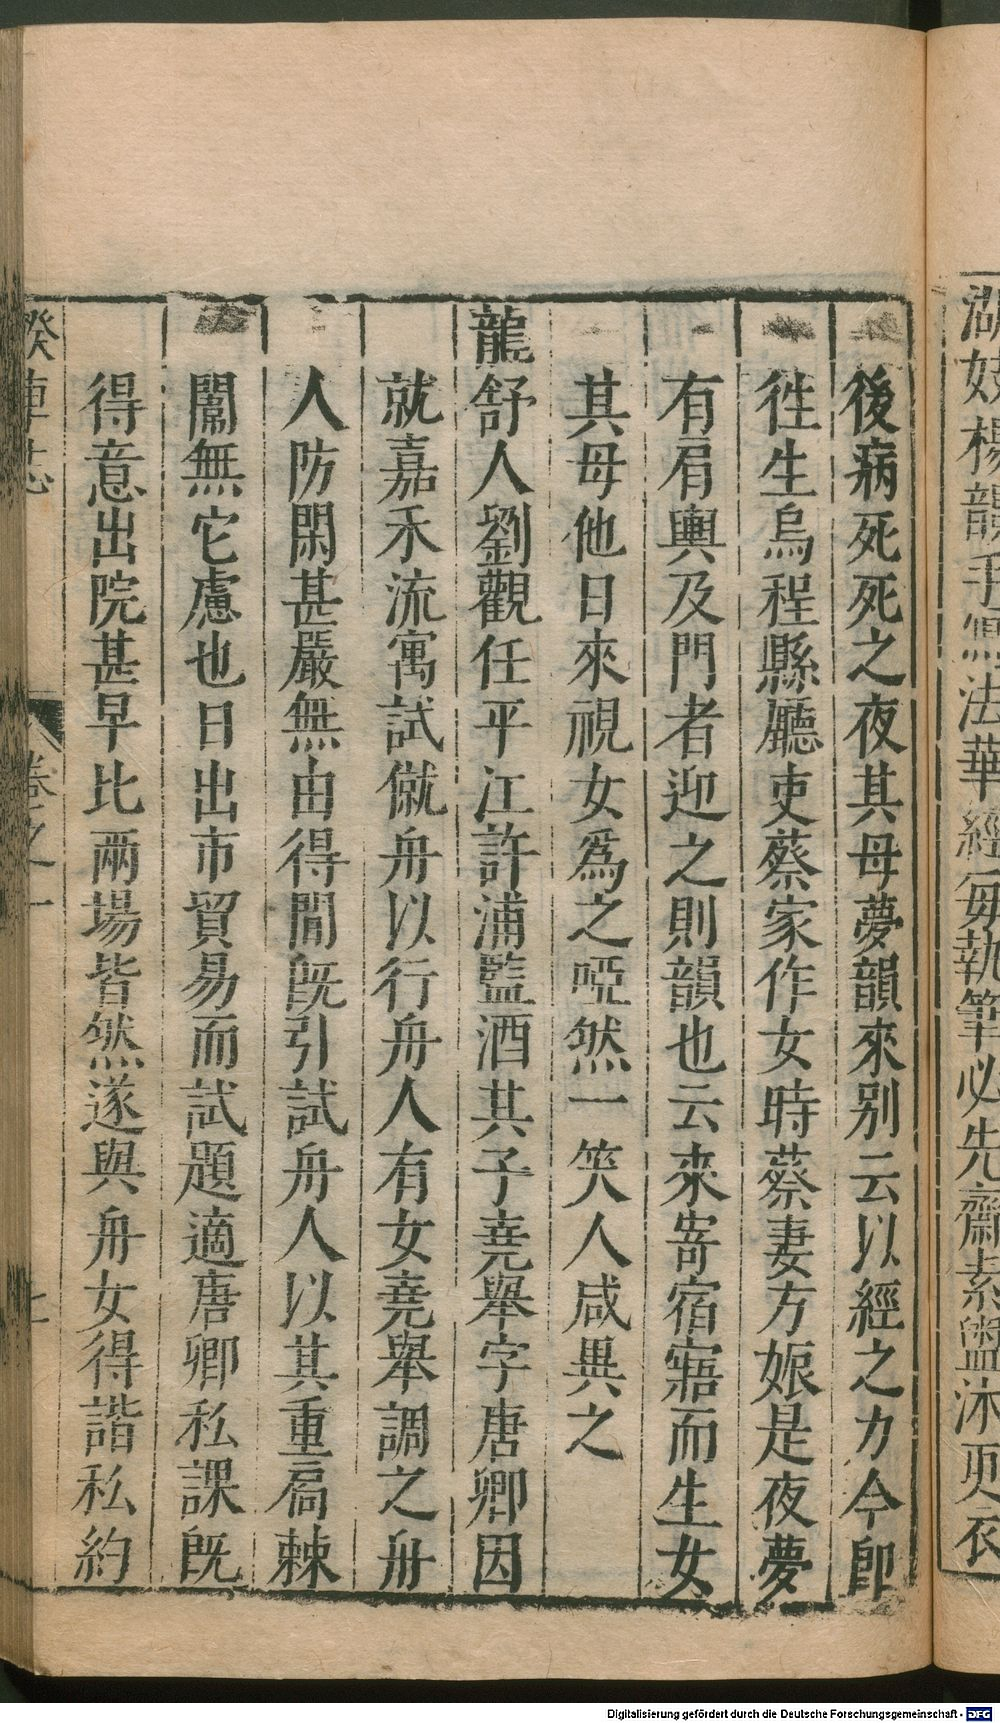 湖妓楊韻手寫法華經每執筆必先齋素盥沐更衣
後病死死之夜其母夢韻來别云以經之力今卽
徃生烏程縣廳吏蔡家作女時蔡妻方娠是夜夢
有肩輿及門者迎之則韻也云来寄宿寤而生女
其母他日來視女爲之啞然一笑人咸異之
龍舒人劉觀任平江許浦監酒其子堯舉字唐卿因
就嘉禾流寓試僦舟以行舟人有女堯舉調之舟
人防閑甚嚴無由得間既引試舟人以其重扃棘
闈無它慮也日出市貿易而試題適唐卿私課既
得意出院甚早比兩場皆然遂與舟女得諧私約
睽車志
卷之一
Digitalisierung gefördert durch die Deutsche Forschungsgemeinschaft - DFG